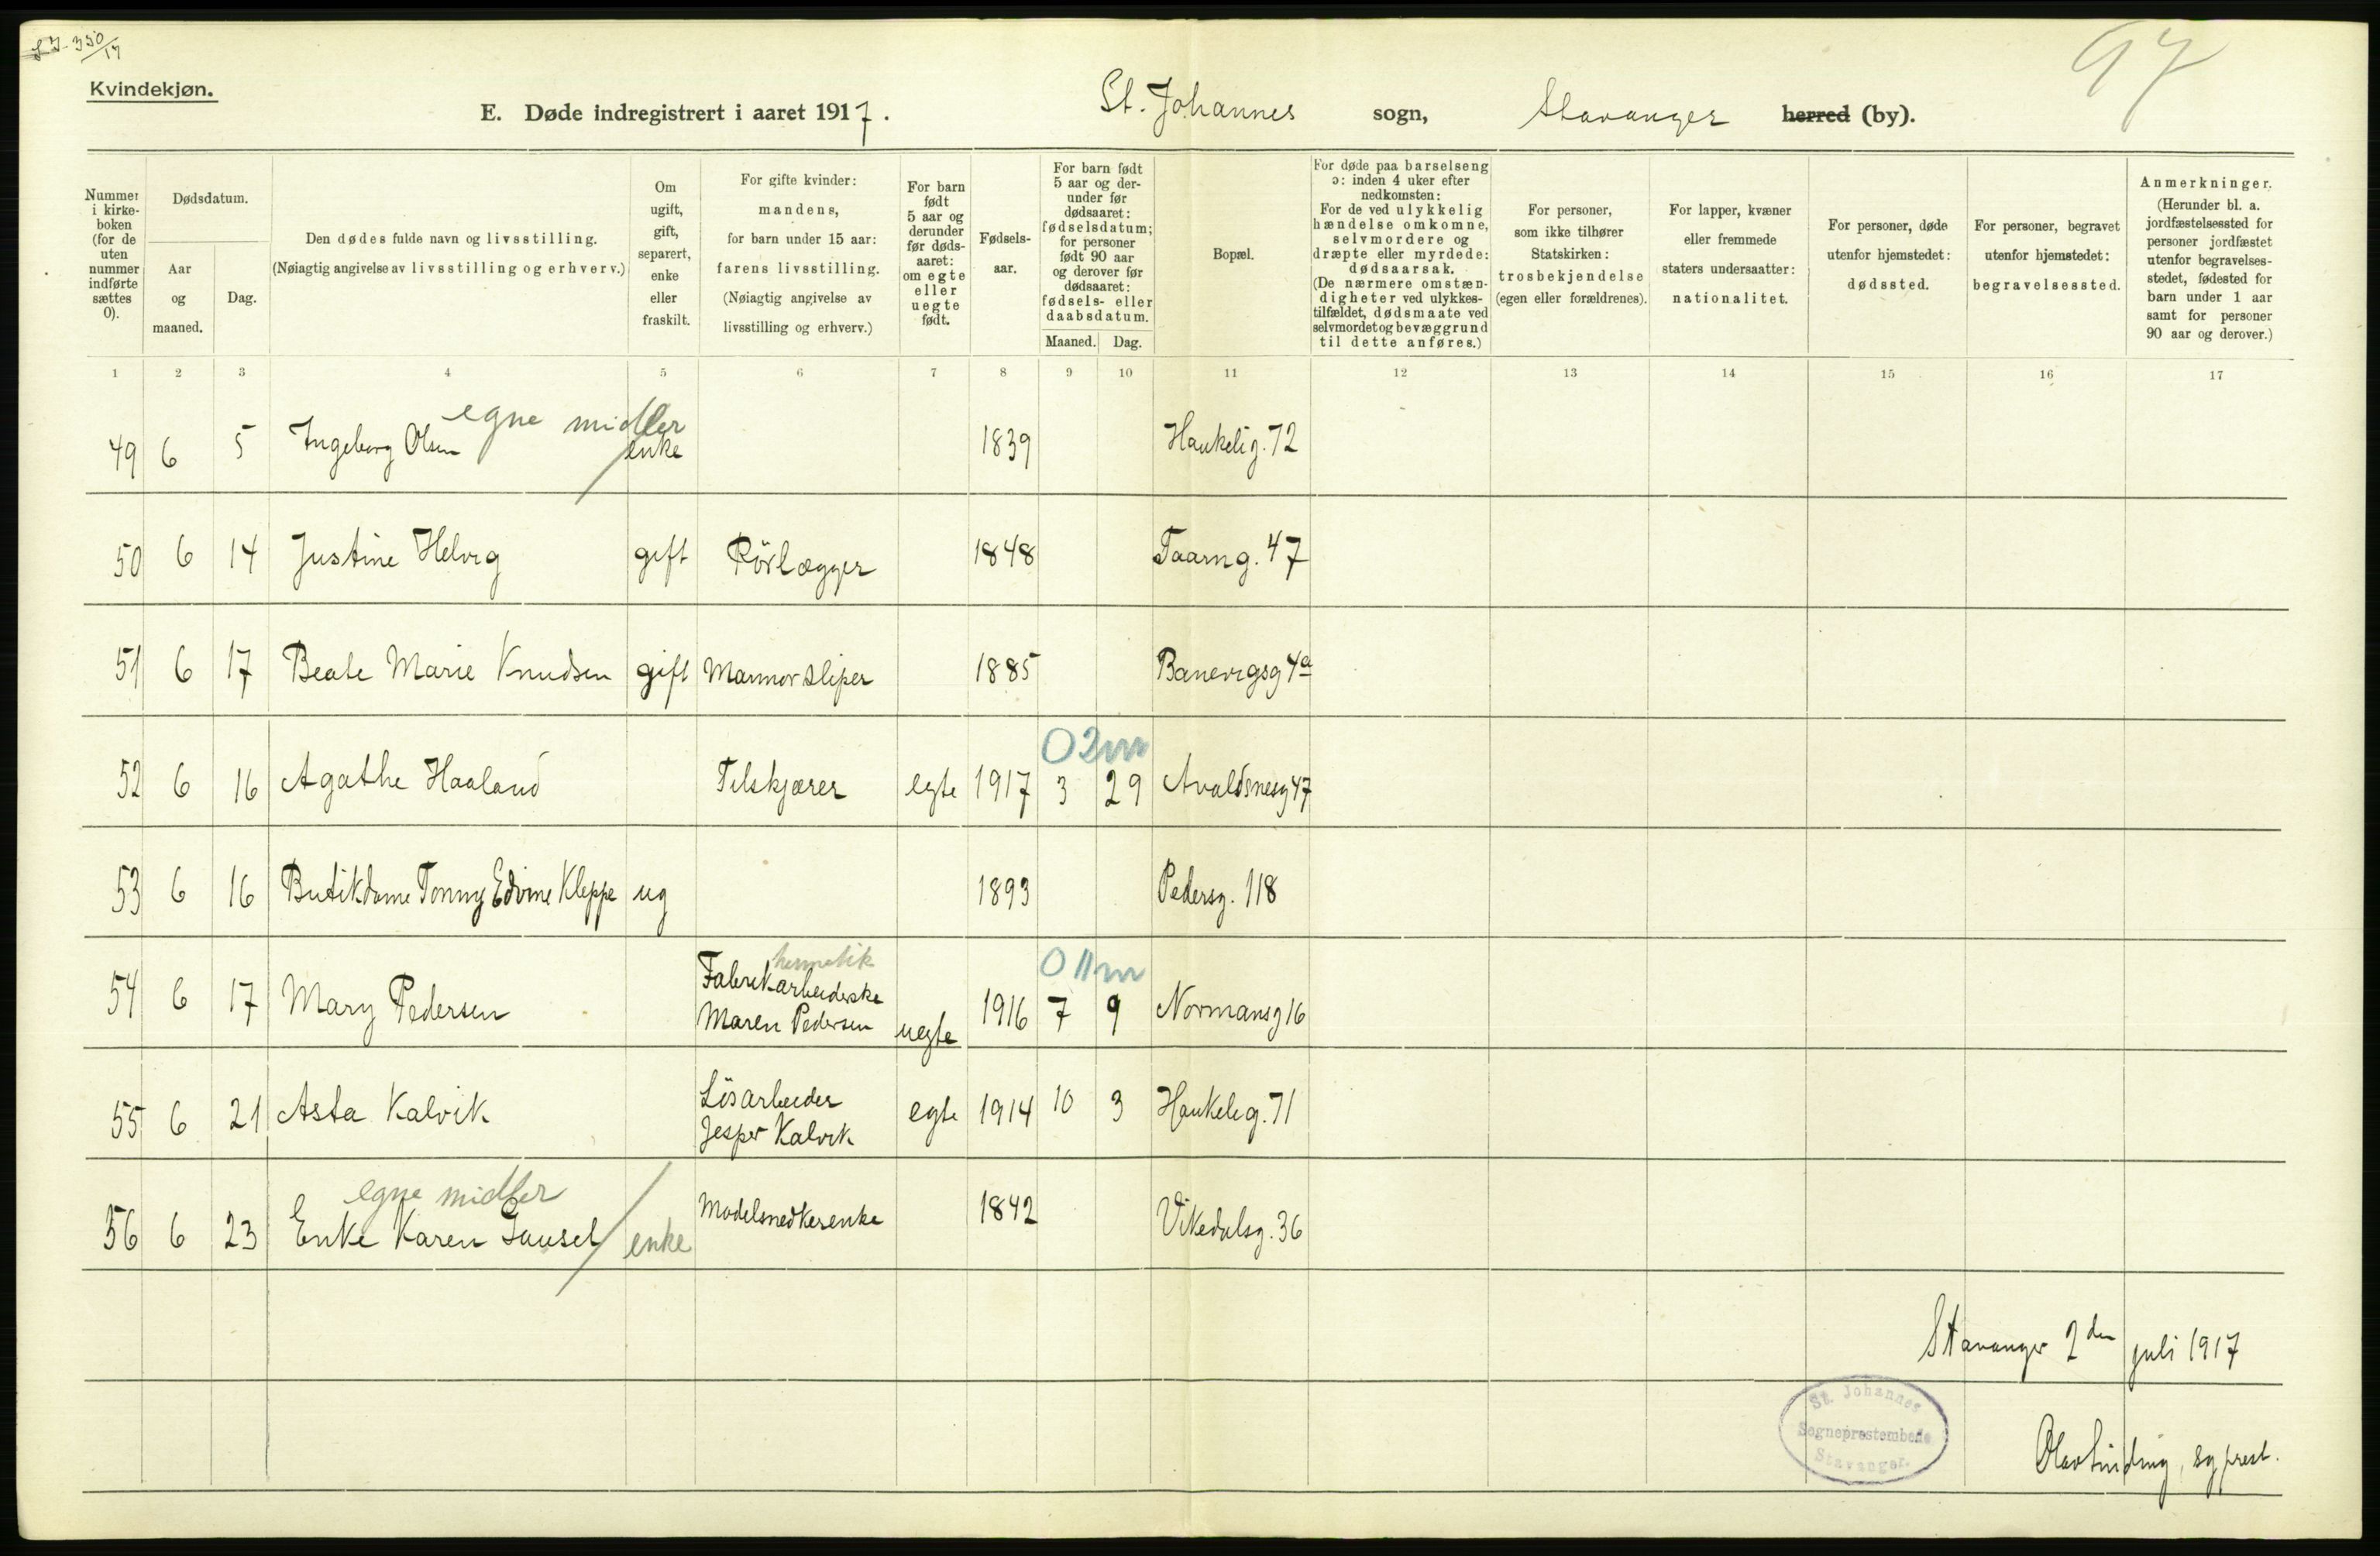 97
Kvindekjøn.
E. Døde indregistrert i aaret 1917. St. Johannes sogn, Stavanger herred (by).
Nummer i kirke- boken (for de uten nummer indførte sættes 0).
Dødsdatum.
Aar og maaned.
Dag.
Den dødes fulde navn og livsstilling.
(Nøiagtig angivelse av livsstilling og erhverv.)
Om ugift, gift, separert, enke eller fraskilt.
For gifte kvinder: mandens, for barn under 15 aar: farens livsstilling. (Nøiagtig angivelse av livsstilling og erhverv.)
For barn født 5 aar og derunder før døds- aaret: om egte eller uegte født.
Fødsels- aar.
For barn født 5 aar og der- under før dødsaaret: fødselsdatum; for personer født 90 aar og derover før dødsaaret: fødsels- eller daabsdatum.
Maaned. Dag.
Bopæl.
For døde paa barselseng ɔ: inden 4 uker efter nedkomsten: For de ved ulykkelig hændelse omkomne, selvmordere og dræpte eller myrdede: dødsaarsak. (De nærmere omstæn- digheter ved ulykkes- tilfældet, dødsmaate ved selvmordet og bevæggrund til dette anføres.)
For personer, som ikke tilhører Statskirken: trosbekjendelse (egen eller forældrenes).
For lapper, kvæner eller fremmede staters undersaatter: nationalitet.
For personer, døde utenfor hjemstedet: dødssted.
For personer, begravet utenfor hjemstedet: begravelsessted.
Anmerkninger. (Herunder bl. a. jordfæstelsessted for personer jordfæstet utenfor begravelses- stedet, fødested for barn under 1 aar samt for personer 90 aar og derover.)
1 2 3 4 5 6 7 8 9 10 11 12 13 14 15 16 17
egne midler
49 6 5 Ingeborg Olsen enke 1839 Haukelig. 72
50 6 14 Justine Helvig gift Rörlægger 1848 Taarng. 47
51 6 17 Beate Marie Knudsen gift Marmorsliper 1885 Banevigsg 4a
0 2m
52 6 16 Agathe Haaland Tilskjærer egte 1917 3 29 Avaldsnesg 47
53 6 16 Butikdame Tonny Edvine Kleppe ug 1893 Pedersg. 118
hermetik 0 11m
54 6 17 Mary Pedersen Fabrikarbeiderske Maren Pedersen uegte 1916 7 9 Normansg 16
55 6 21 Asta Kalvik Lösarbeider Jesper Kalvik egte 1914 10 3 Haukelig. 71
egne midler
56 6 23 Enke Karen Sausel enke Modelsnedkerenke 1842 Vikedalsg. 36
Stavanger 2den juli 1917
St. Johannes
Sogneprestembede
Stavanger.
Olav Sinding, sgprest.